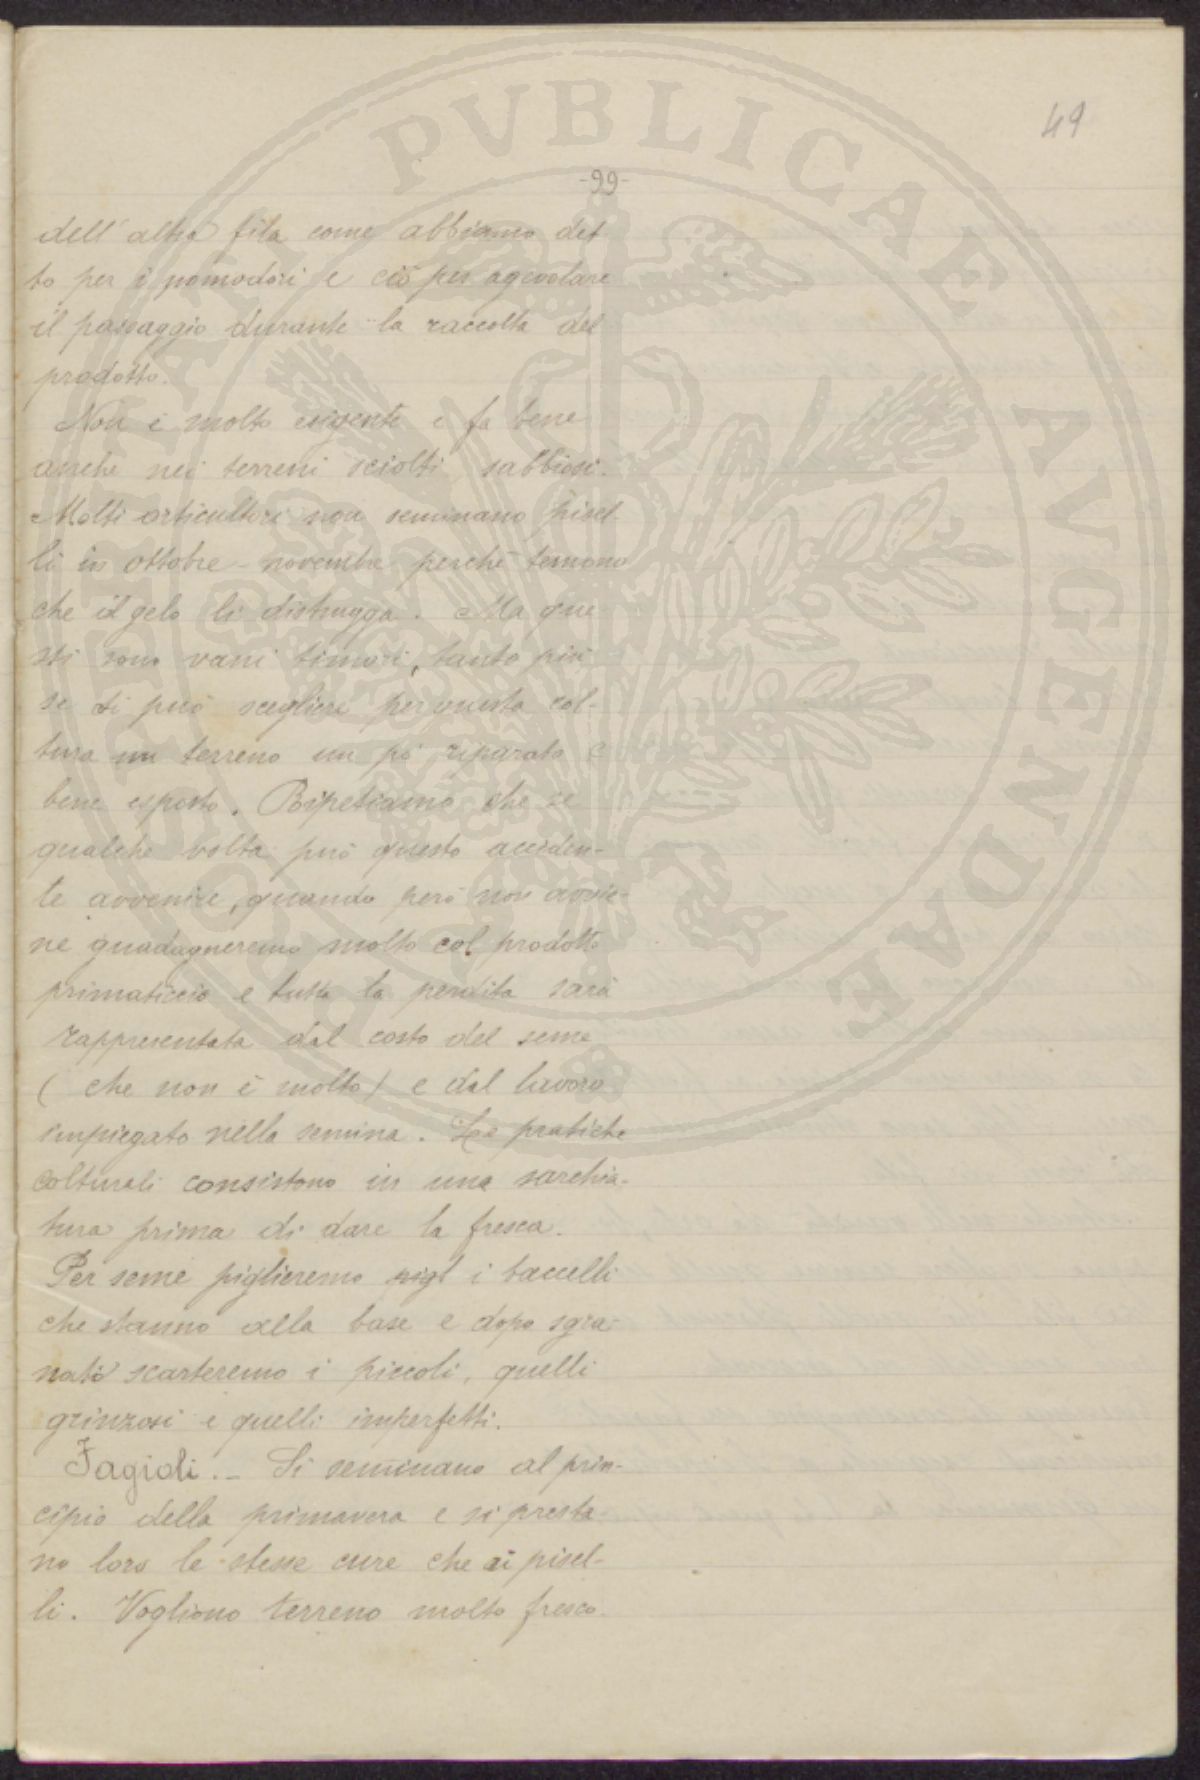 49
-99-
dell'altra fila come abbiamo det
to per i pomodori e ciò per agevolare
il passaggio durante la raccolta del
prodotto.
Non è molto esigente e fa bene
anche nei terreni sciolti, sabbiosi.
Molti orticultori non seminano pisel-
li in ottobre - novembre perchè temono
che il gelo li distrugga. Ma que
sti sono vani timori, tanto più
se si può scegliere per questa col-
tura un terreno un pò riparato e
bene esposto. Ripetiamo che se
qualche volta può questo acciden-
te avvenire, quando però non avvie-
ne guadagneremo molto col prodotto
primaticcio e tutta la perdita sarà
rappresentata dal costo del seme
( che non è molto) e dal lavoro
impiegato nella semina. Le pratiche
colturali consistono in una sarchia-
tura prima di dare la fresca.
Per seme piglieremo pigl i baccelli
che stanno alla base e dopo sgra-
nati scarteremo i piccoli, quelli
grinzosi e quelli imperfetti.
Fagioli.- Si seminano al prin-
cipio della primavera e si presta-
no loro le stesse cure che ai pisel-
li. Vogliono terreno molto fresco.
PVBLICAE AVGENDAE